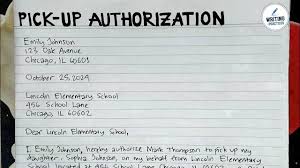 PICK-UP AUTHORIZATION
WRITING
PRACTICES
Emily Johnson
123 Oak Avenue
Chicago, IL 60601
October 25, 2024
Lincoln Elementary School
456 School Lane
Chicago, IL 60602
Dear Lincoln Elementary School,
I, Emily Johnson, hereby authorize Mark Thompson to pick up my
daughter, Sophia Johnson, on my behalf from Lincoln Elementary
School located at 456 School Lane, Chicago, IL